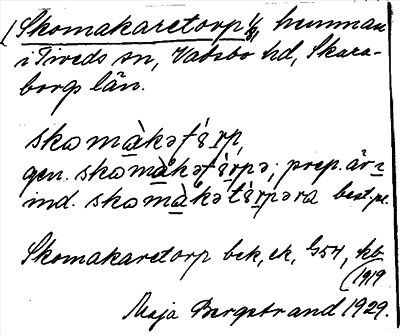 (Skomakaretorp 1/4, hemman
i Tiveds sn, Vadsbo hd, Skara-
borgs län.
skomàkətórp,
gen. skomàkətórpə; prep. är i
ind. skomàkətórpəra best. pl.
Skomakaretorp bek, ek, G54, hb
(1919
Maja Bergstrand 1929.